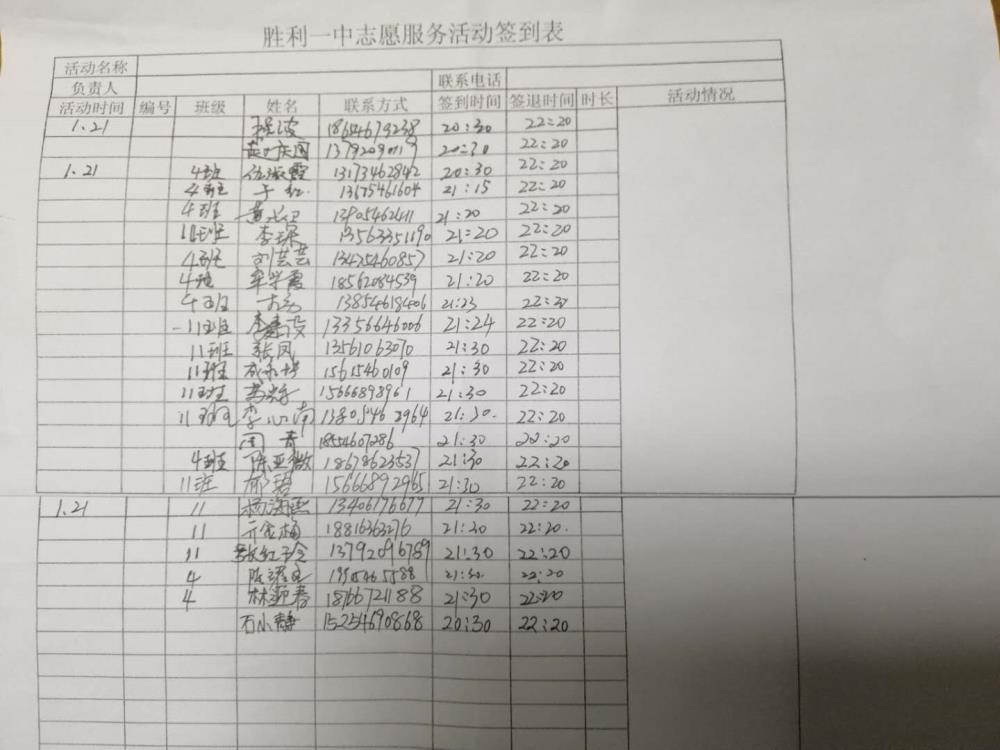 胜利一中志愿服务活动签到表
活动名称
负责人 联系电话
活动时间 编号 班级 姓名 联系方式 签到时间 签退时间 时长 活动情况
1.21 18654679238 20:30 22:20
20:30 22:20
1.21 4班 13173462842 20:30 22:20
4班 于红 13675461604 21:15 22:20
4班 21:20 22:20
11班 李琛 13563351190 21:20 22:20
4班 刘芸芸 13425460857 21:20 22:20
4班 牟学霞 18562084539 21:20 22:20
4班 13854618406 21:23 22:20
11班 李建设 13356646006 21:24 22:20
11班 张凤 13561063070 21:30 22:20
11班 15615460109 21:30 22:20
11班 15666898961 21:30 22:20
11班 李心南 13805462964 21:30. 22:20
周青 18554607286 21:30 22:20
4班 陈亚微 18678623537 21:30 22:20
11班 15666892965 21:30 22:20
1.21 11 13406176677 21:30 22:20
11 亓金梅 18816363276 21:20 22:20.
11 张红玲 13792096789 21:30 22:20
4 21:30. 22:20
4 林迎春 18766721188 21:30 22:20
石小静 15254690868 20:30 22:20